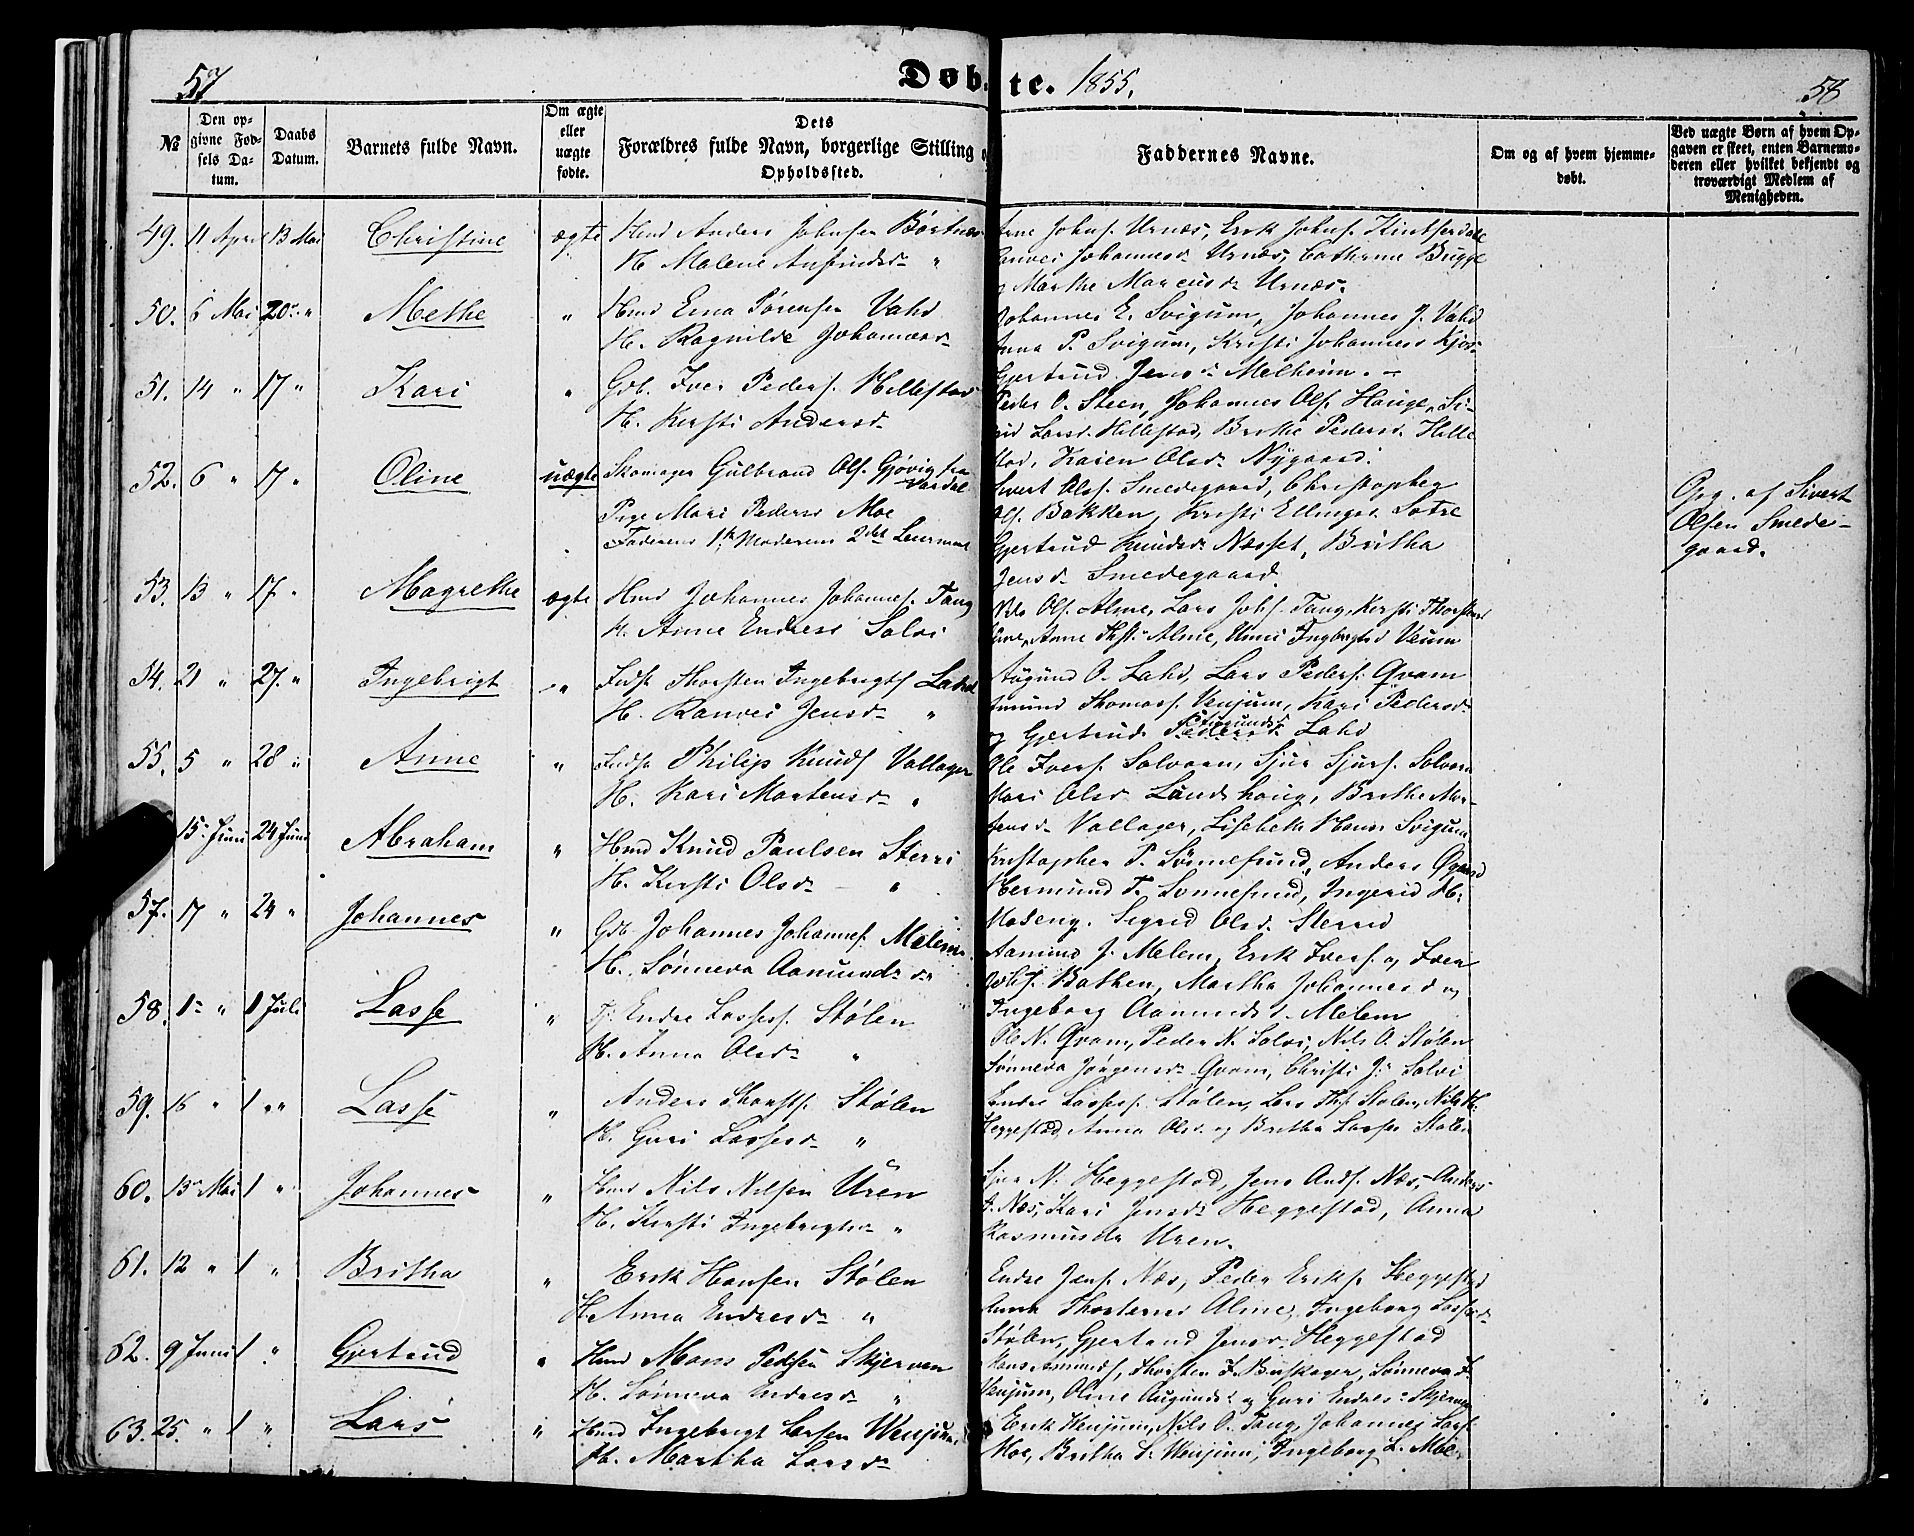 57
Døbte. 1855.
58
№
Den opgivne Fødsels Datum.
Daabs Datum.
Barnets fulde Navn.
Om ægte eller uægte fødte.
Dets Forældres fulde Navn, borgerlige Stilling
Opholdssted.
Faddernes Navne.
Om og af hvem hjemmedøbt.
Ved uægte Børn af hvem Opgaven er skeet, enten Barnemoderen eller hvilket bekjendt og troværdigt Medlem af Menigheden.
49. 11 April 13 Mai Christine ægte Hmd Anders Johnsen Børtnes
H. Malene Anfindsd "
Arne Johns. Urnæs, Erik Johns.
Johannesd. Urnæs, Cathrine Brygge
Marthe Marcusd. Urnæs.
50. 6 Mai 20 " Methe " Hmd Sørensen Vahd
H. Ragnilde Johannesd
Johannes E. Svigum, Johannes J. Vahd
Anna P. Svigum, Kristi Johannesd
Gjertrud Jensd. Melheim.
51. 14 " 17 " Kari " Gdb. Iver Peders. Hillestad
H. Kersti Andersd
Peder O. Steen, Johannes Ols. Hauge, Si-
Larsd. Hillestad, Brithe Pedersd. Hille
stad, Karen Olsd. Nygaard.
52. 6 " 17 " Oline uægte Skomager Gulbrand Ols. Gjøvig fra
Vardal
Pige Mari Pedersd Moe
Faderens 1te, Moderens 2det Leiermaal
Sivert Ols. Smedegaard, Christopher
Ols. Bakken, Kristi Ellingsd.
Gjertrud Knudsd. Næsset, Britha
Jensd. Smedegaard.
Opg. af Sivert
Olsen Smede-
gaard.
53. 13 " 17 " Magrethe ægte Hmd Johannes Johannes. Tang
H. Anne Endresd Solvi
Nils Ols. Alme, Lars Johs. Tang, Kersti Thorstensd
Anne Alme, Ingebrigtsd Veum
54. 21 " 27. " Ingebrigt " Inds. Thorsten Ingebrigts. Lahd
H. Ranvei Jensd "
Augund O. Lahd, Lars Peders. Qvam
Thomass. Venjum, Kari Pedersd
og Gjertrud Lahd
55. 5 " 28 " Anne " Inds. Philip Knuds. Vallager
H. Kari Mortensd "
Ole Ivers. Solvorn, Sjur Sjurs. Solvorn
Kari Olsd Lundshaug, Brithe Mor-
tensd Vallager, Lisebeth Svigum
15 Juni 24 Juni Abraham " Hmd Knud Paulsen Sterri
H. Kersti Olsd "
Kristopher P. Sønnesund, Anders
Hermund T. Sønnesund, Ingerid H.
Moseng, Sigrid Olsd. Sterri
57. 17 " 24 " Johannes " Gdb. Johannes Johannes. Melem
H. Sønneva Aamundsd
Aamund J. Melem, Erik Ivers. og Iver
Johs. Bakken, Martha Johannesd og
Ingeborg Aamundsd Melem
58. 1 " 1 Juli Lasse " Endre Lasses. Stølen
H. Anna Olsd "
Ole N. Qvam, Peder N. Solvi, Nils O. Stølen
Sønneva Jørgensd Qvam, Christi J. Solvi
59. 16 " 1 " Lasse " Anders Thorsts. Stølen
H. Guri Lassesd "
Endre Lasses. Stølen, Lars Ths. Stølen, Nils H.
Heggestad, Anna Olsd og Britha Lassesd Stølen
60. 15 Mai 1 " Johannes " Hmd Nils Nilsen Uren
H. Kersti Ingebrigtsd "
Sjur N. Heggestad, Jens Ands. Næs, Anders
J. Næs, Kari Jensd Heggestad, Anna
Rasmusdr Uren.
61. 12 " 1 " Britha " Erik Hansen Stølen
H. Anna Endresd "
Endre Jens. Næs, Peder Eriks. Heggestad
Anna Thorstensd Alme, Ingeborg Lassesd
Stølen, Gjertrud Jensd. Heggestad
62. 9 Juni 1 " Gjertrud " Hmd Mons Pedsen Skjerven
H. Sønneva Endresd "
Hans Amunds., Thorsten I. Buskager, Sønneva I.
Venjum, Oline Augundsd og Guri Endresd Skjerven
63. 25. " 1 " Lars " Hmd Ingebrigt Larsen Wenjum
H. Martha Larsd
Erik Wenjum, Nils O. Tang, Johannes Lars.
Moe, Britha L. Wenjum, Ingeborg L. Moe